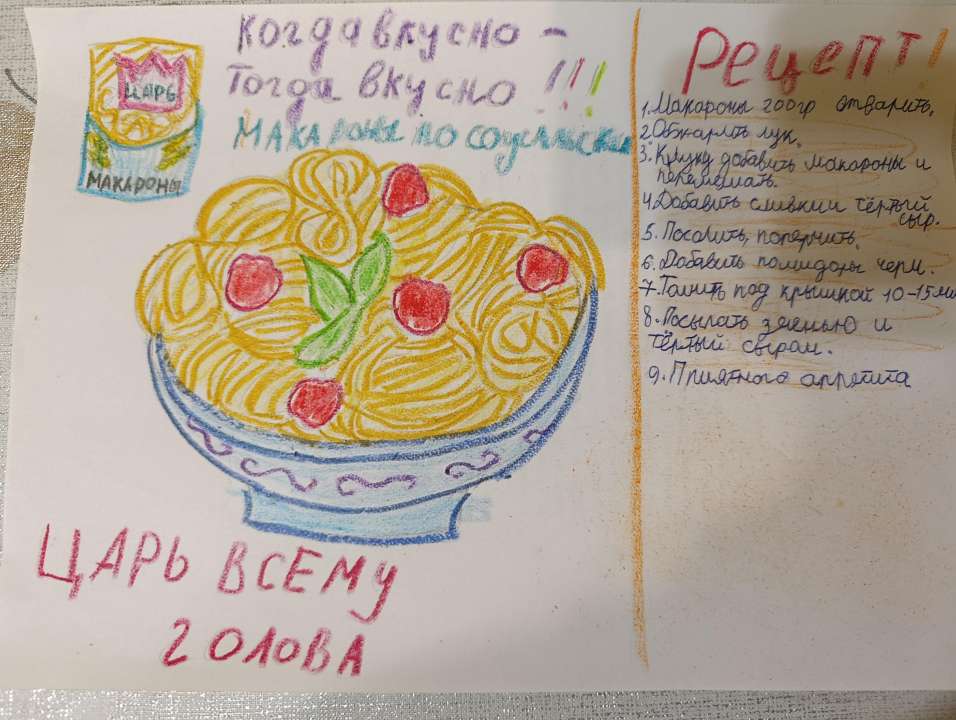 ЦАРЬ
МАКАРОНЫ
Когда вкусно –
Тогда вкусно!!!
МАКАРОНЫ по
ЦАРЬ ВСЕМУ
ГОЛОВА
Рецепт!
1. Макароны 200гр отварить.
2. Обжарить лук.
3. К луку добавить макароны и
перемешать.
4. Добавить сливки и тёртый
сыр.
5. Посолить, поперчить.
6. Добавить помидоры черри.
7. Томить под крышкой 10-15 ми
8. Посыпать зеленью и
тёртый сыром.
9. Приятного аппетита